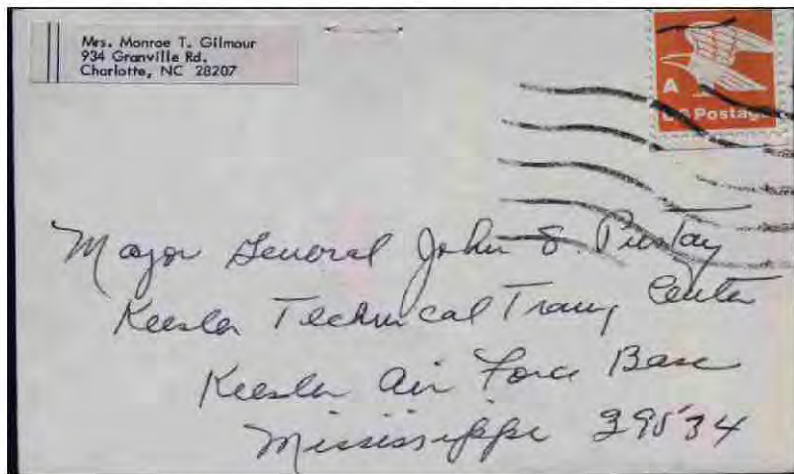 Mrs. Monroe T. Gilmour
934 Granville Rd.
Charlotte, NC 28207
A
US Postage
Major General John S. Pustay
Keesler Technical Traing Center
Keesler Air Force Base
Mississippi 39534